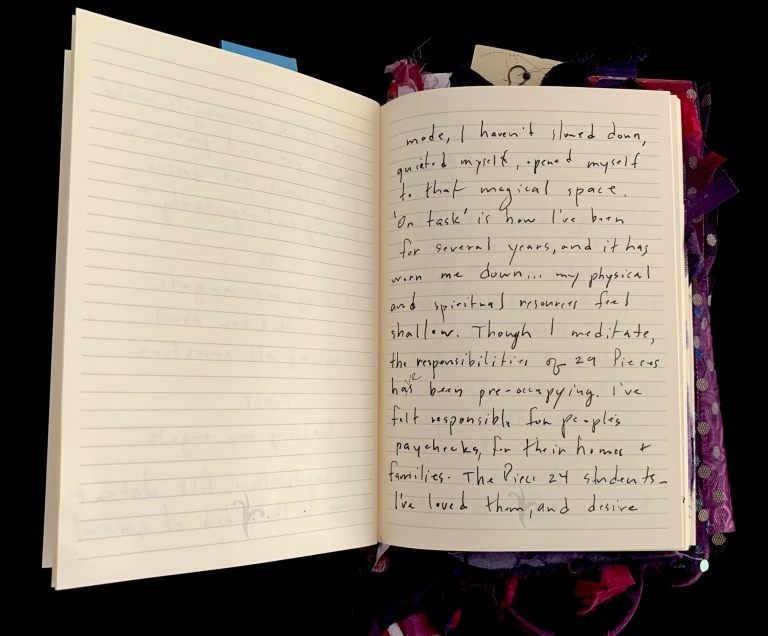 mode, I haven't slowed down,
quieted myself, opened myself
to that magical space.
'On task' is how I've been
for several years, and it has
worn me down... my physical
and spiritual resources feel
shallow. Though I meditate,
the responsibilities of 29 Pieces
have been pre-occupying. I've
felt responsible for people's
paychecks, for their homes +
families. The Piece 24 students -
I've loved them, and desire